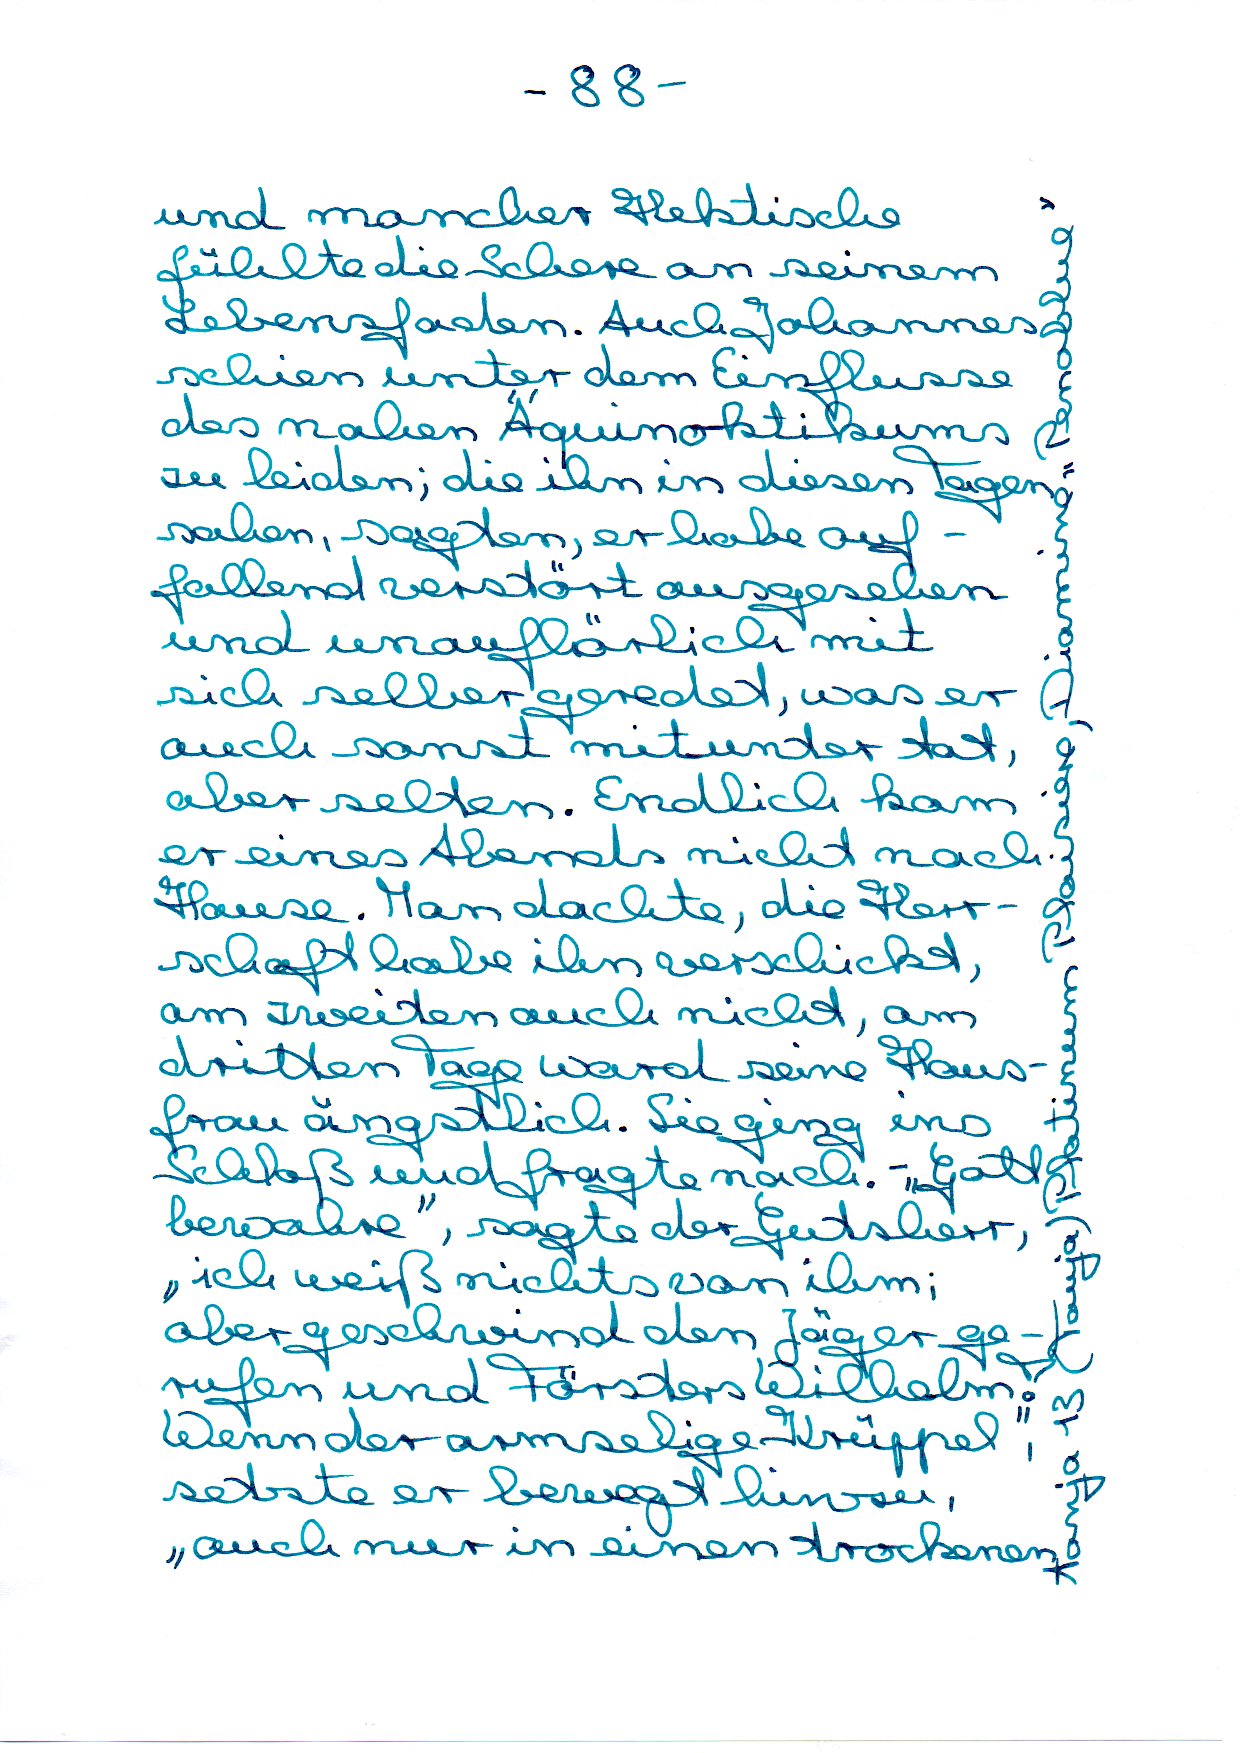 - 88 -
und mancher Hektische
fühlte die Schere an seinem
Lebensfaden. Auch Johannes
schien unter dem Einflusse
des nahen Äquinoktikums
zu leiden; die ihn in diesen Tagen
sahen, sagten, er habe auf-
fallend verstört ausgesehen
und unaufhörlich mit
sich selber geredet, was er
auch sonst mitunter tat,
aber selten. Endlich kam
er eines Abends nicht nach
Hause. Man dachte, die Herr-
schaft habe ihn verschickt,
am zweiten auch nicht, am
dritten Tage ward seine Haus-
frau ängstlich. Sie ging ins
Schloß und fragte nach. - „Gott
bewahre", sagte der Gutsherr,
„ich weiß nichts von ihm;
aber geschwind den Jäger ge-
rufen und Försters Wilhelm!
Wenn der armselige Krüppel",
setzte er bewegt hinzu,
„auch nur in einen trockenen
13 Platinum Plaisier, Diamine